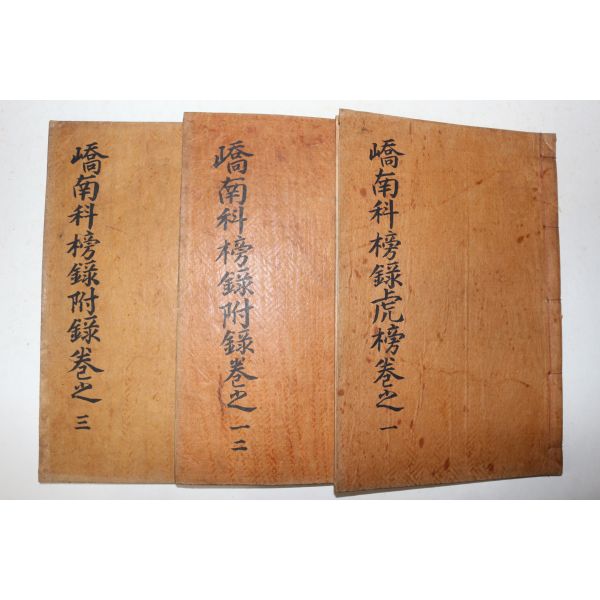 嶠南科榜錄虎榜卷之一
嶠南科榜錄附錄卷之一二
嶠南科榜錄附錄卷之三